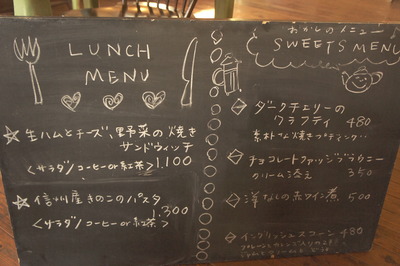 LUNCH
MENU
☆生ハムとチーズ、野菜の焼き
サンドウィッチ
<サラダ/コーヒーor紅茶>1.100
☆信州産きのこのパスタ
1.300
<サラダ/コーヒーor紅茶>
おかしのメニュー
SWEETS MENU
ダークチェリーの
クラフティ 480
チョコレートファッジブラウニー
クリーム添え 350
洋なしの赤ワイン煮 500
イングリッシュスコーン 480